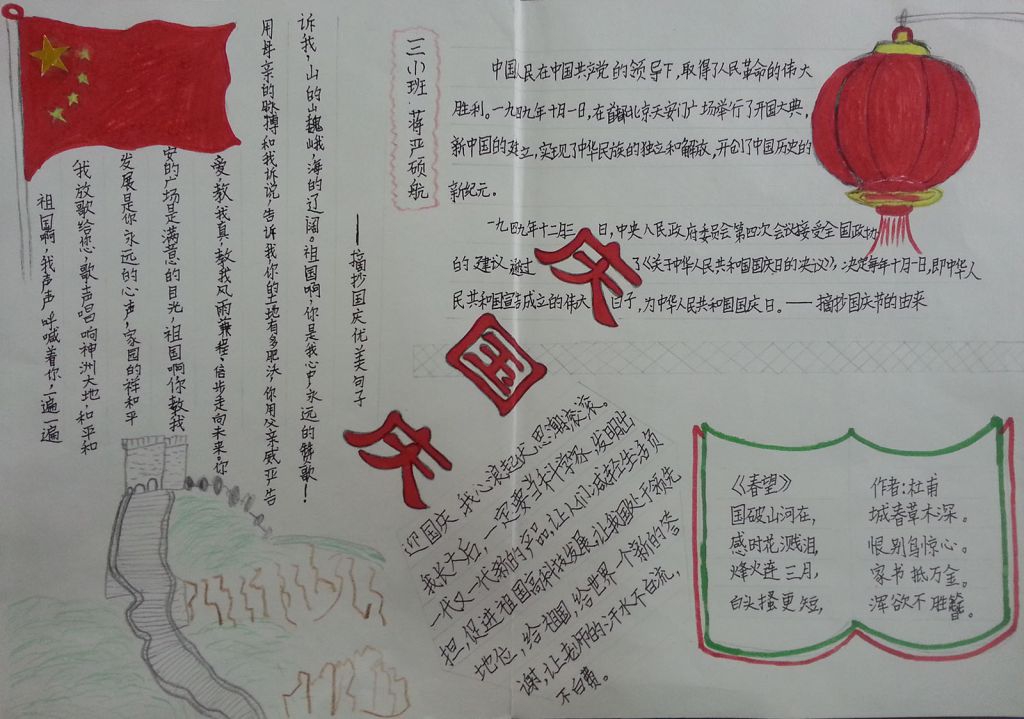 三小班·蒋严硕航
中国人民在中国共产党的领导下,取得了人民革命的伟大
胜利。一九四九年十月一日,在首都北京天安门广场举行了开国大典,
新中国的建立,实现了中华民族的独立和解放,开创了中国历史的
新纪元。
一九四九年十二月 日,中央人民政府委员会第四次会议接受全国政协
的建议 通过 了《关于中华人民共和国国庆日的决议》,决定每年十月一日,即中华人
民共和国宣告成立的伟大 日子,为中华人民共和国国庆日。——摘抄国庆节的由来
祖国啊,我声声呼喊着你,一遍一遍
我放歌给您,歌声唱响神洲大地,和平和
发展是你永远的心声,家园的祥和平
安的广场是满意的目光,祖国啊你教我
爱,教我真,教我风雨兼程、信步走向未来,你
用母亲的脉搏和我诉说,告诉我,你的土地有多肥沃,你用父亲威严告
诉我,山的巍峨,海的辽阔。祖国啊,你是我心声永远的赞歌!
——摘抄国庆优美句子
庆
国
庆
迎国庆,我心浪起伏,思潮滚滚。
我长大后,一定要当科学家,发明出
一代又一代新的产品,让人们减轻生活负
担,促进祖国高科技发展,让我国处于领先
地位,给祖国,给世界一个新的答
谢,让老师的汗水不白流,
不白费。
《春望》 作者:杜甫
国破山河在, 城春草木深。
感时花溅泪, 恨别鸟惊心。
烽火连三月, 家书抵万金。
白头搔更短, 浑欲不胜簪。